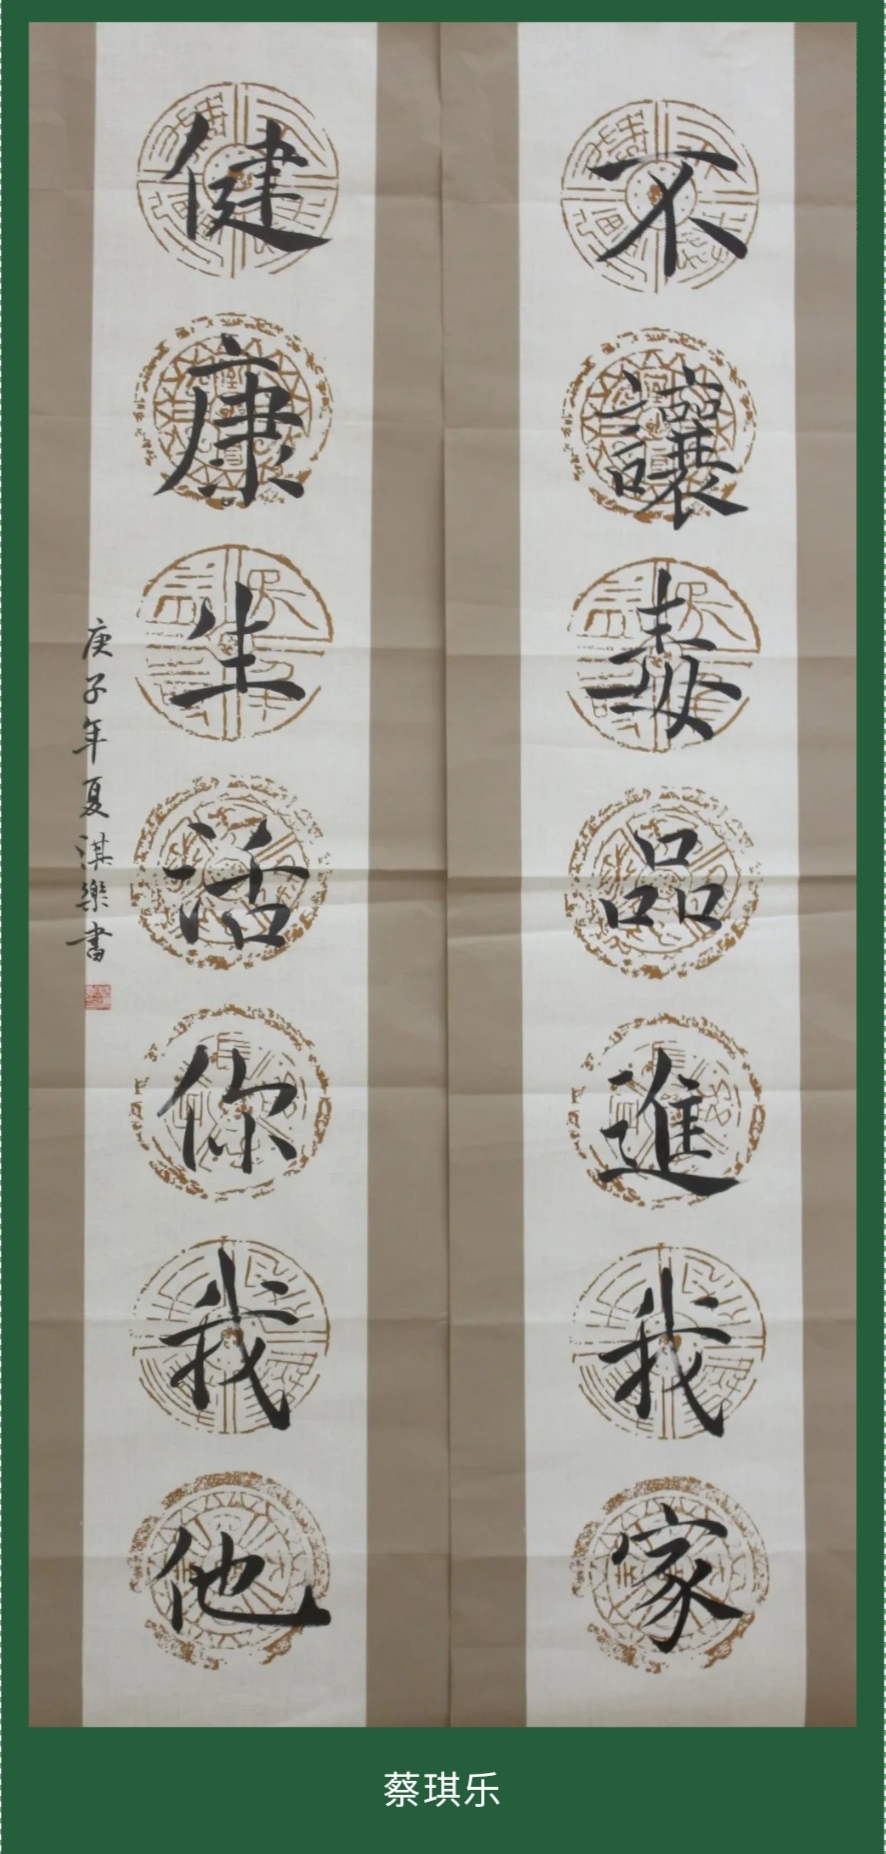 不讓毒品進我家
健康生活你我他
庚子年夏淇樂書
蔡琪乐